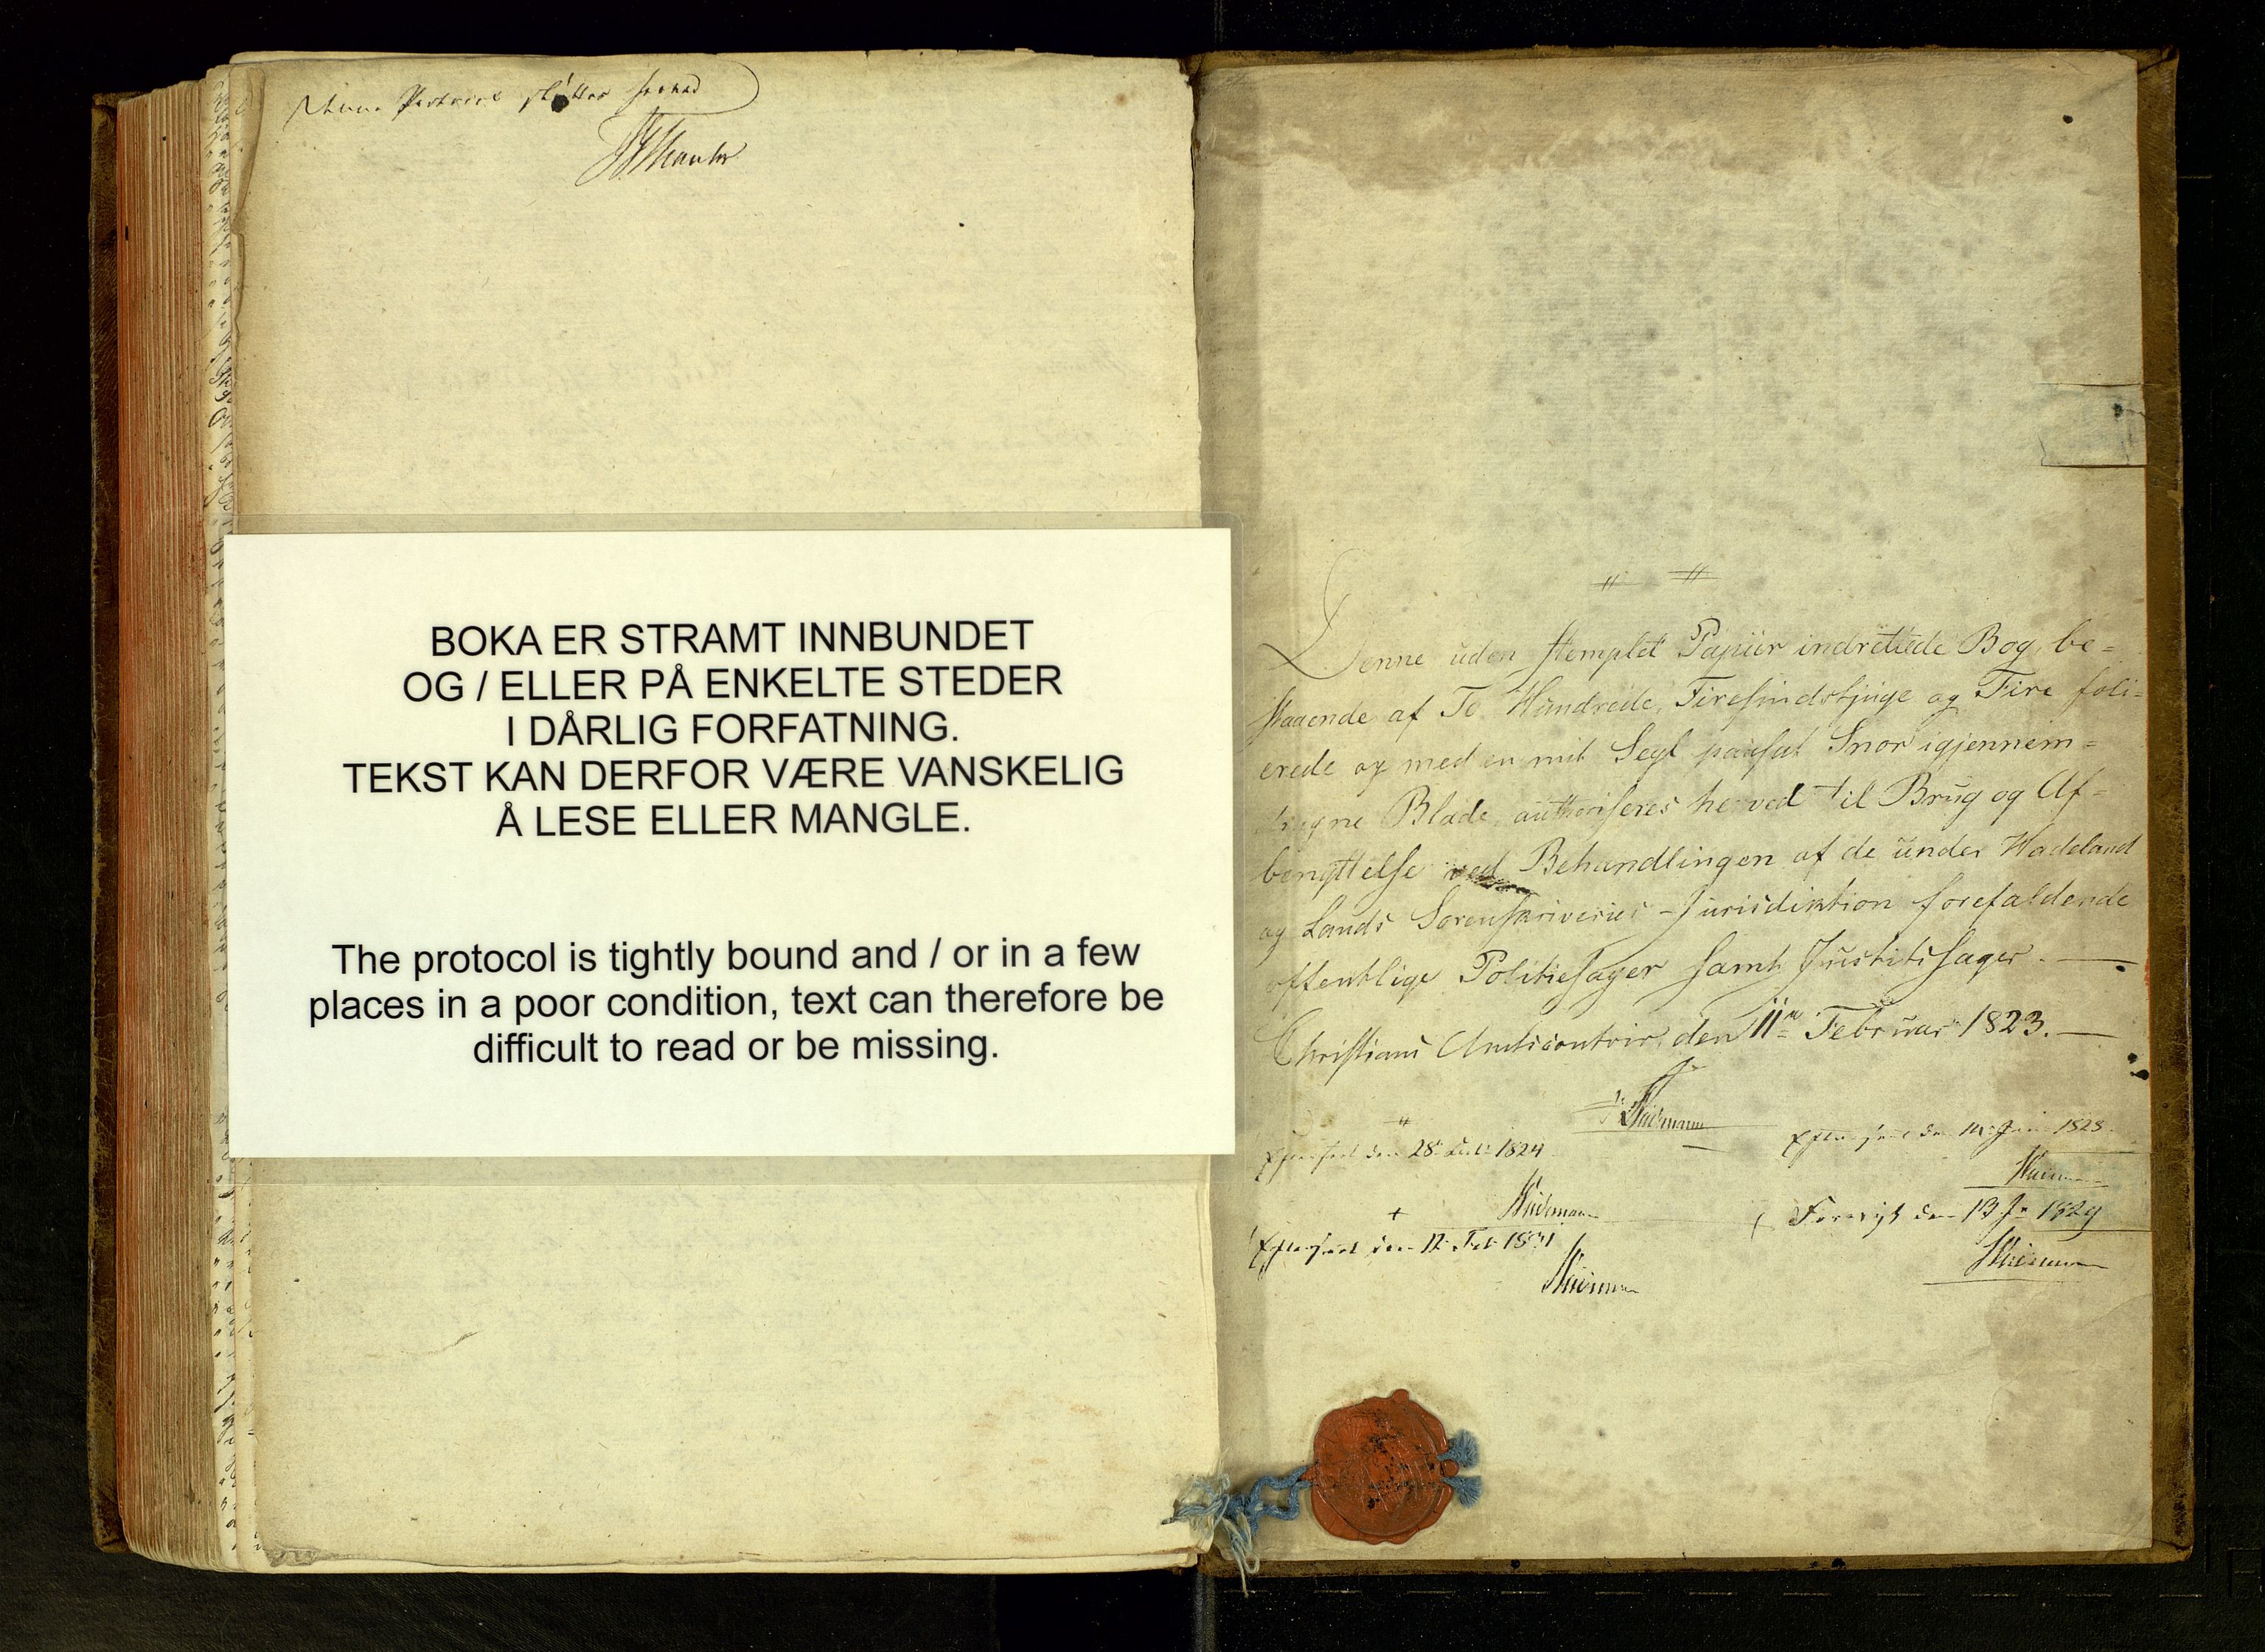 Denne Protocol slutter herved
BOKA ER STRAMT INNBUNDET
OG / ELLER PÅ ENKELTE STEDER
I DÅRLIG FORFATNING.
TEKST KAN DERFOR VÆRE VANSKELIG
Å LESE ELLER MANGLE.
The protocol is tightly bound and / or in a few
places in a poor condition, text can therefore be
difficult to read or be missing.
Denne uden stemplet Papiir indrettede Bog, be=
staaende af To Hundrede, Firesindstjuge og Fire foli=
erede og med en mit Segl paasat Snor igjennem=
dragne Blade, authoriseres herved til Brug og Af=
benyttelse ved Behandlingen af de under Hadeland
og Lands Sorenskriveries-Jurisdiktion forefaldende
offentlige Politiesager samt Justitssager.
Christians Amtscontoir, den 11te Februar 1823.
Efterseet den 28 1824
Efterseet den 1828
Eftersect den 12 Feb
den 13 1829